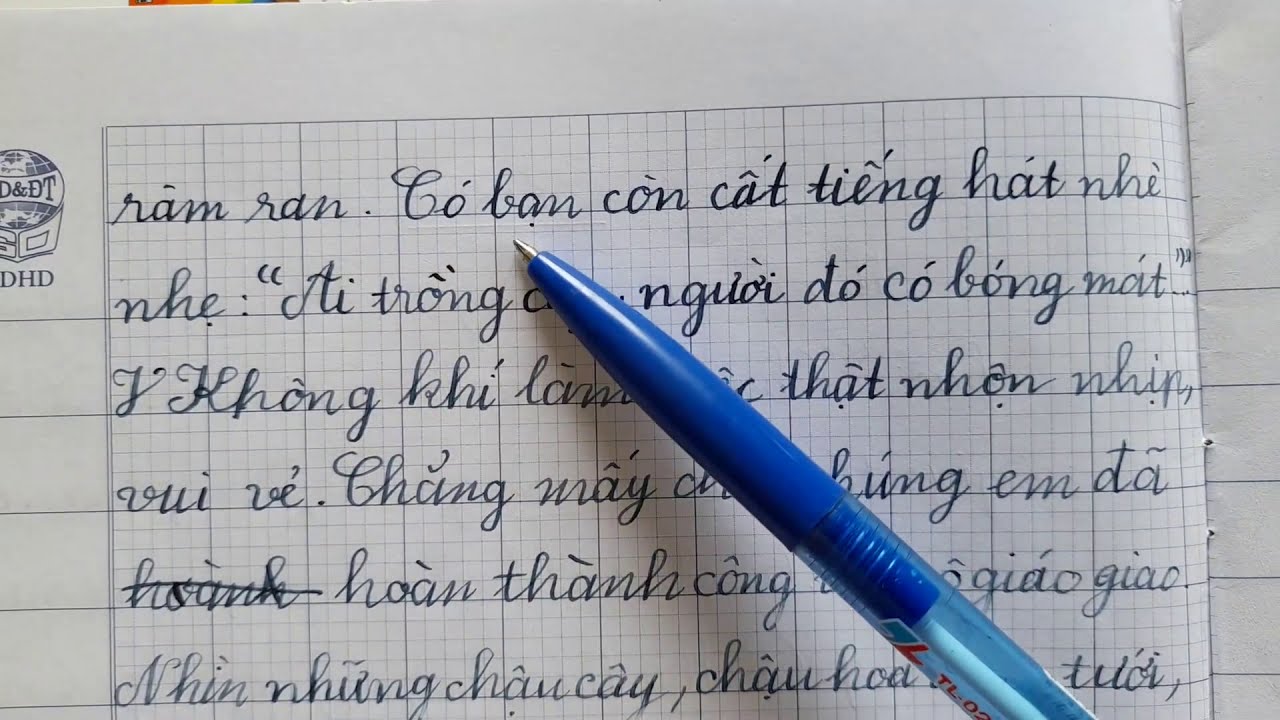 D&ĐT
DHD
râm ran. Có bạn còn cất tiếng hát nhè
nhẹ: "Ai trồng người đó có bóng mát..."
Không khí làm thật nhộn nhịp,
vui vẻ. Chẳng mấy em đã
hoàn thành công giáo giao.
Nhìn những chậu cây, chậu hoa tưới,
TL-02